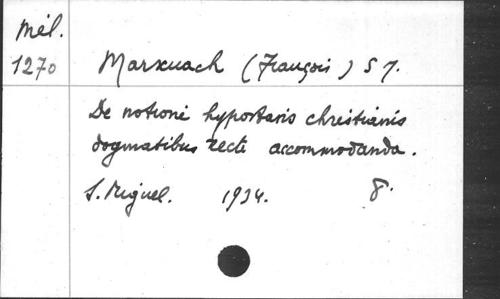 Mél.
1270
Marxuach (François) S J.
De notione hypostasis christianis
dogmatibus recte accommodanda.
S. Miguel. 1934. 8.